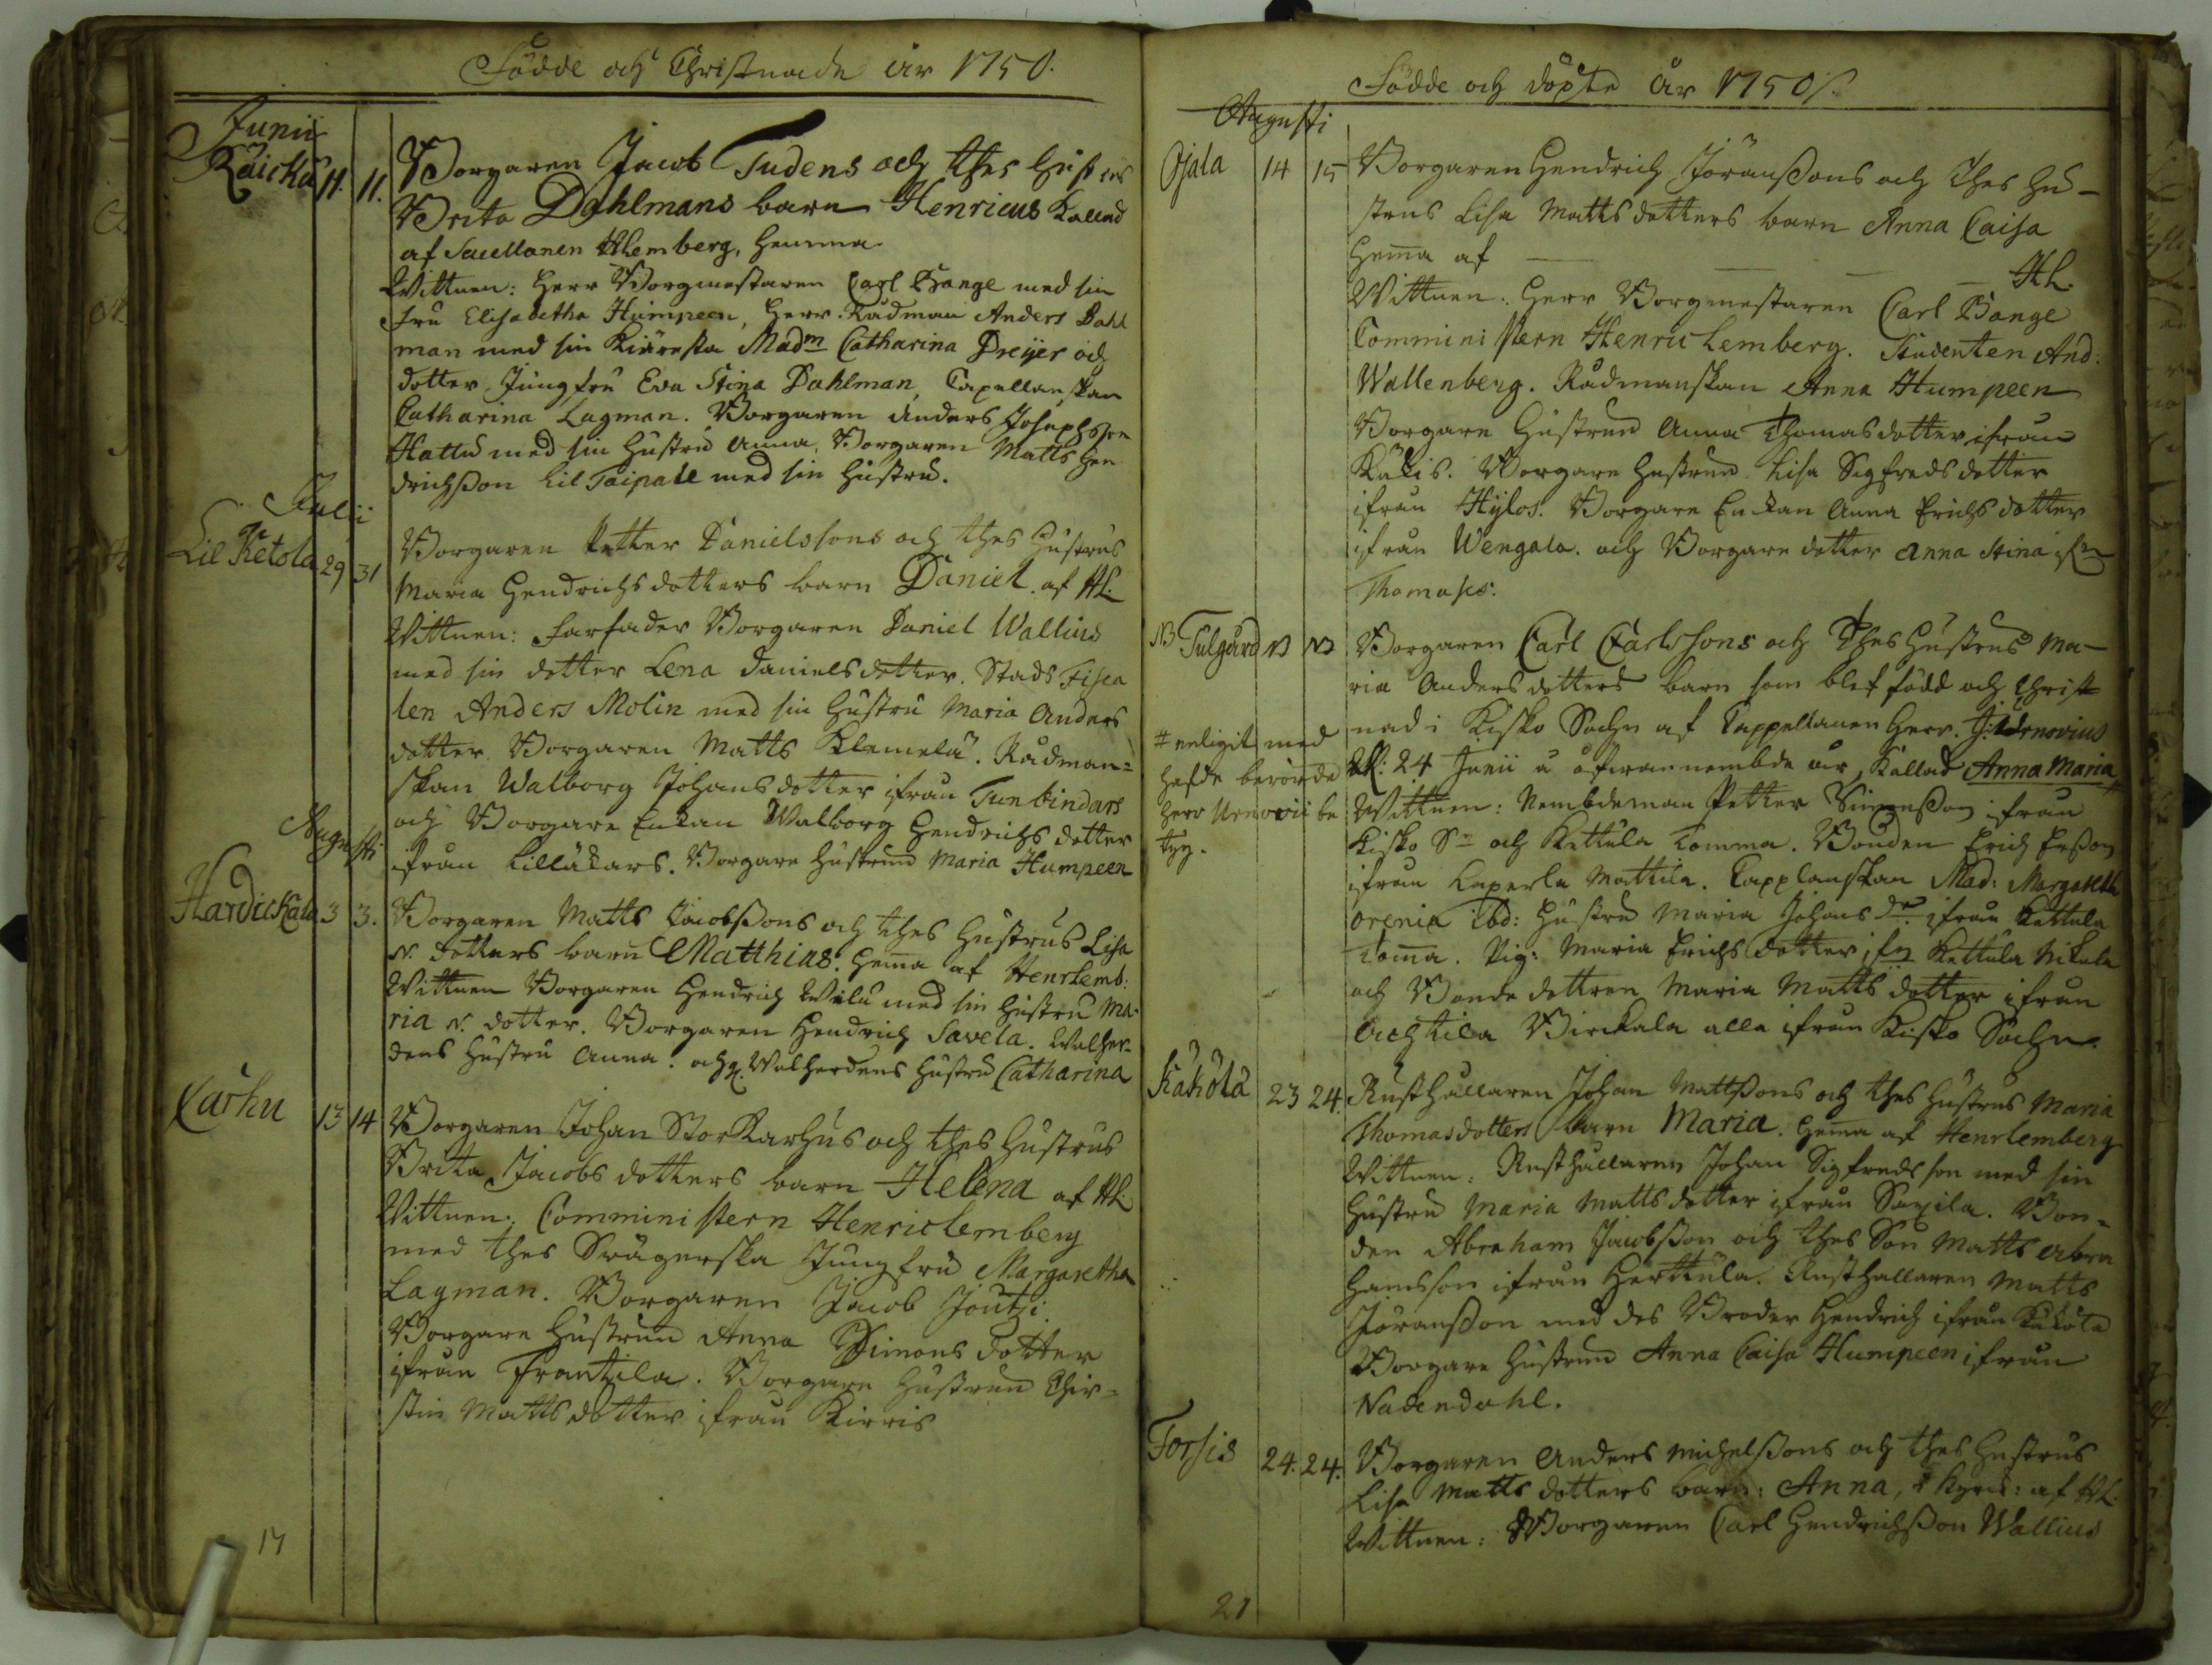 Födde och Christnade år 1750.
Junii
Räicka 11. 11. Borgaren Jacob Tudens och thes hustrus
Brita Dahlmans barn Henricus kallad
af Sacellanen HLemberg, hemma
Wittnen: Herr Borgmestaren Carl Bange med sin
Fru Elisabetha Humpeen, Herr Rådman Anders Dahl
man med sin Kiäresta Madm Catharina Dreijer och
dotter Jungfru Eva Stina Dahlman, Capellanskan
Catharina Lagman. Borgaren Anders Josephsson
Hattu med sin hustru Anna, Borgaren Matts Hen
drichsson Lil Taipale med sin hustru.
Julii
Lil Ketola 29 31 Borgaren Petter Danielssons och thes hustrus
Maria Hendrichsdotters barn Daniel af HL.
Wittnen: Farfader Borgaren Daniel Wallius
med sin dotter Lena Danielsdotter. Stads Fisca
len Anders Molin med sin hustru Maria Anders
dotter Borgaren Matts Klemelä. Rådman=
skan Walborg Johansdotter ifrån Tunbindars
och Borgare Enkan Walborg Hendrichs dotter
ifrån Lilläkars. Borgare hustrun Maria Humpeen
Augusti
Hardickala 3 3. Borgaren Matts Jacobssons och thes hustrus Lisa
N. dotters barn Matthias. hema af HenrLemb:
Wittnen Borgaren Hendrich Wilu med sin hustru Ma-
ria N. dotter. Borgaren Hendrich Savela. Walher-
dens hustru Anna. och Walherdens hustru Catharina
Carhu 13 14 Borgaren Johan StorKarhus och thes hustrus
Brita Jacobs dotters barn Helena af HL.
Wittnen: Comministern Henric Lemberg
med thes Swägerska Jungfru Margaretha
Lagman. Borgaren Jacob Joutzi.
Borgare hustrun Anna Simons dotter
ifrån Frantzila. Borgare hustrun Chir=
stin Mattsdotter ifrån Kirris
17
Födde och döpte år 1750.
Augusti
Ojala 14 15 Borgaren Hendrich Jöranssons och thes hu-
strus Lisa Mattsdotters barn Anna Caisa
hema af HL.
Wittnen: Herr Borgmestaren Carl Bange
Comministern Henric Lemberg. Studenten And:
Wallenberg. Rådmanskan Anna Humpeen
Borgare hustrun Anna Thomasdotter ifrån
Käkis. Borgare hustrun Lisa Sigfredsdotter
ifrån Hylos. Borgare Enkan Anna Erichsdotter
ifrån Wengala. och Borgare dotter Anna Stina ifrn
Thomases.
NB Tulgård N N Borgaren Carl Carlssons och Thes hustrus Ma-
ria Anders dotters barn som blef född och Christ
nad i Kisko Sochn af Cappellanen Herr. J: Urnovius
d: 24 Junii å ofwannembde år, kallad Anna Maria #
# enligit med
hafde berörde
Herr Urnovii be
tyg.
Wittnen: Nembdeman Petter Simonsson ifrån
Kisko Sn och Kettula Tomma. Bonden Erich Ersson
ifrån Laperla Mattila. Capplanskan Mad: Margaretha
Orenia ibd: hustru Maria Johansdr ifrån Kettula
Toma. Pig: Maria Erichs dotter ifrn Kettula Nikula
och Bonde dottren Maria Matts dotter ifrån
Birckala alla ifrån Kisko Sochn.
Kakola 23 24. Rusthållaren Johan Mattssons och thes hustrus Maria
Thomasdotters barn Maria. hema af HenrLemberg
Wittnen: Rusthållaren Johan Sigfredsson med sin
hustru Maria Mattsdotter ifrån Saxila. Bon=
den Abraham Jacobsson och thes Son Matts Abra
hamsson ifrån Herttula. Rusthållaren Matts
Jöransson med des Broder Hendrich ifrån Kakola
Borgare hustrun Anna Caisa Humpeen ifrån
Nadendahl.
Forsis 24. 24. Borgaren Anders Michelssons och thes hustrus
Lisa Matts dotters barn: Anna, i Kyrk: af HL.
Wittnen: Borgaren Carl Hendrichsson Wallius
21